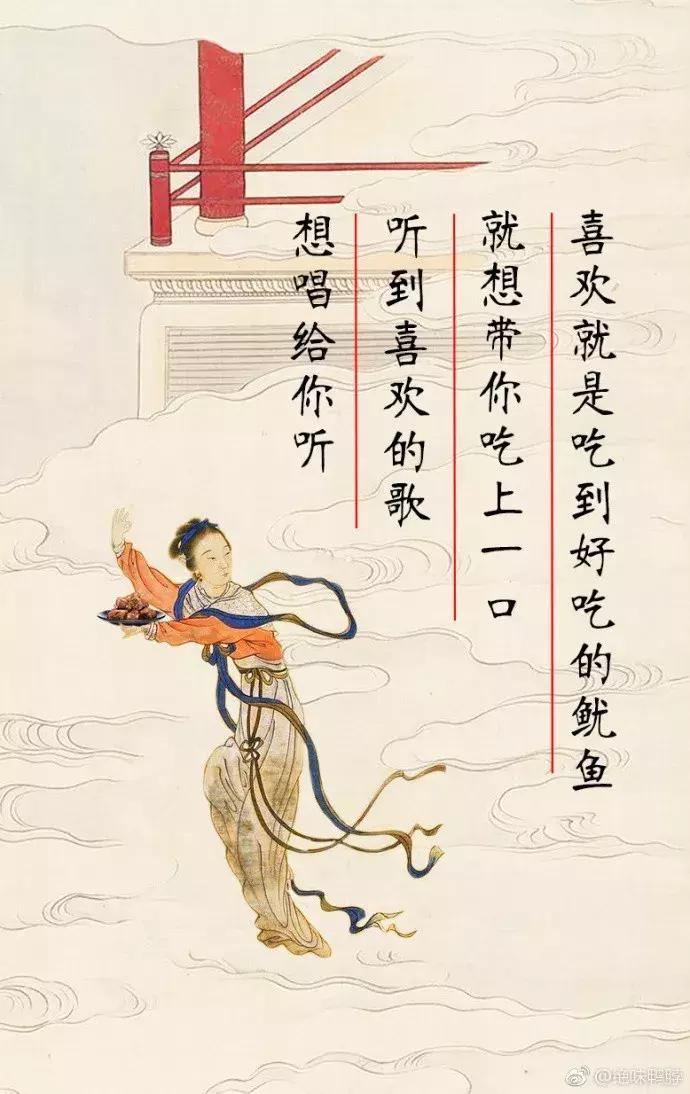 喜欢就是吃到好吃的鱿鱼
就想带你吃上一口
听到喜欢的歌
想唱给你听
@绝味鸭脖